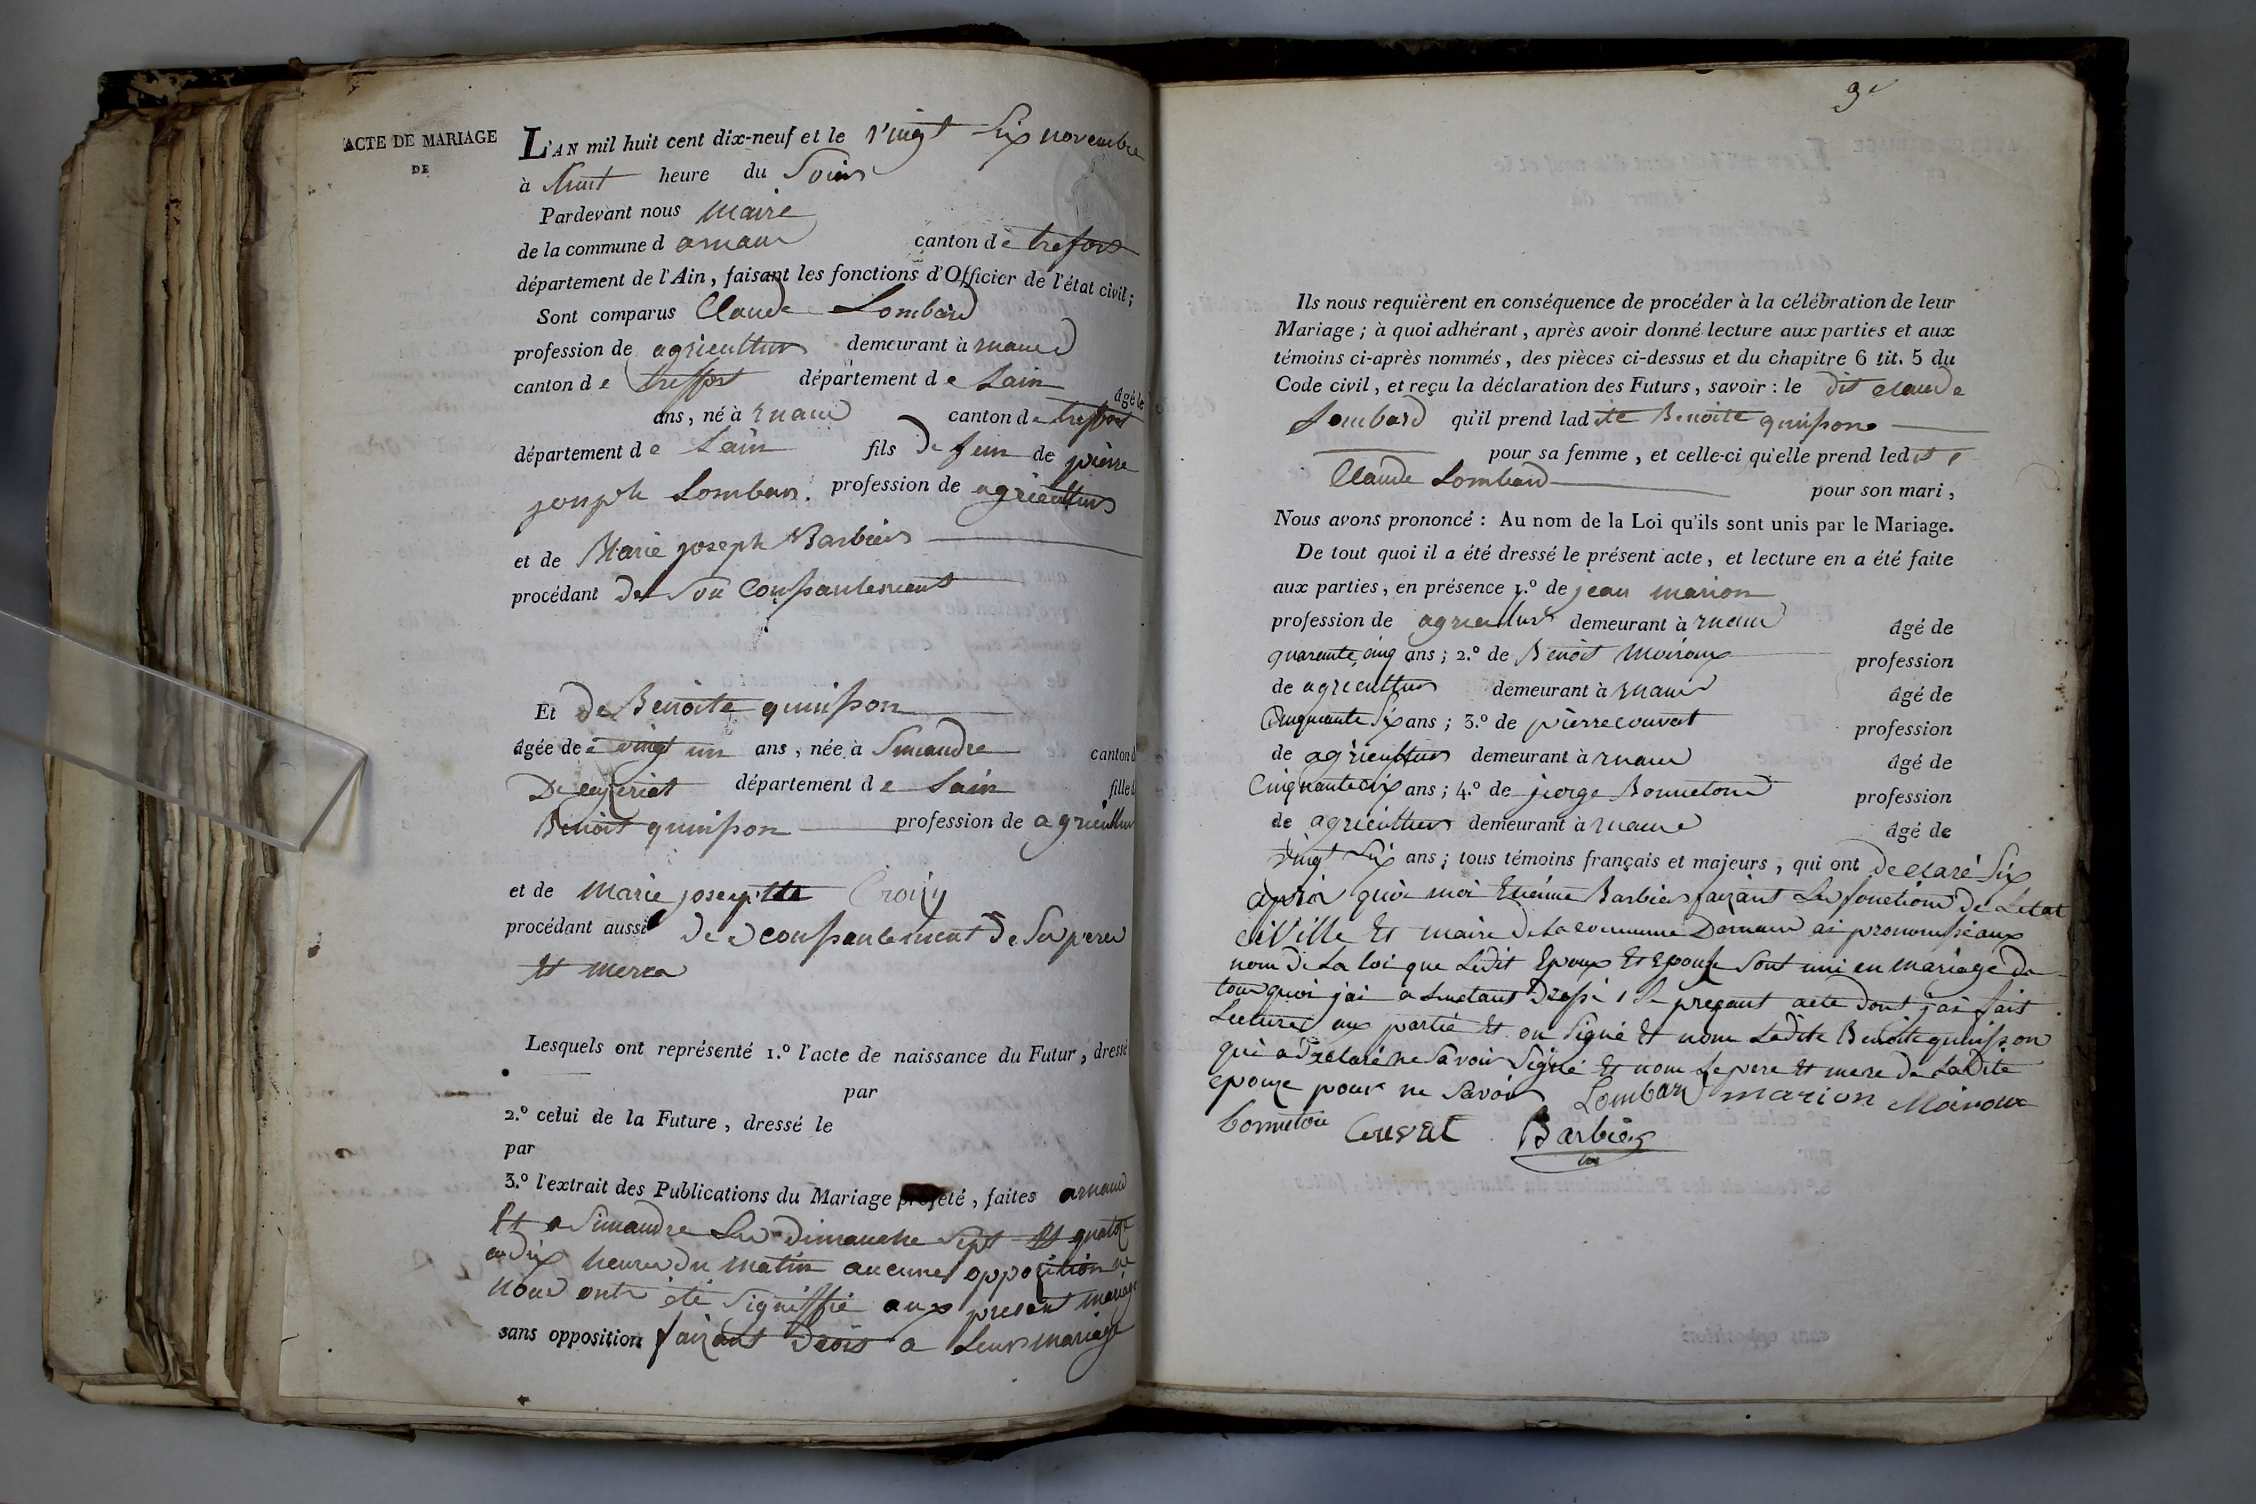 ACTE DE MARIAGE
DE
L'AN mil huit cent dix-neuf et le vingt six novembre
à huit heure du Soir
Pardevant nous Maire
de la commune d arnan canton de trefort
département de l'Ain, faisant les fonctions d'Officier de l'état civil;
Sont comparus Claude Lombard
profession de agriculteur demeurant à
canton de treffort département de Lain âgé de
ans, né à canton de treffort
département de Lain fils de feu de pierre
joseph Lombar. profession de agriculteur
et de Marie joseph Barbier
procédant de Son Conssantement
Et de Benoite quinsson
âgée de vingt un ans, née à Simandre canton d
De département de Lain fille d
Benoit quinsson profession de agriculteur
et de Marie josephte
procédant aussi de conssantement de Ses peres
Et meres
Lesquels ont représenté 1.º l'acte de naissance du Futur, dressé
par
2.º celui de la Future, dressé le
par
3.º l'extrait des Publications du Mariage projeté, faites
Et a Simandre Les dimanche sept Et quatorze
a dix heures du matin aucunes opposition ne
nous ont été signiffié aux present mariage
sans opposition faizant Droit a Leur mariage
3e
Ils nous requièrent en conséquence de procéder à la célébration de leur
Mariage; à quoi adhérant, après avoir donné lecture aux parties et aux
témoins ci-après nommés, des pièces ci-dessus et du chapitre 6 tit. 5 du
Code civil, et reçu la déclaration des Futurs, savoir: le dit Claude
Lombard qu'il prend ladite Benoite quinsson
pour sa femme, et celle-ci qu'elle prend ledit
Claude Lombard pour son mari,
Nous avons prononcé: Au nom de la Loi qu'ils sont unis par le Mariage.
De tout quoi il a été dressé le présent acte, et lecture en a été faite
aux parties, en présence 1.º de jean marion
profession de agriculteur demeurant à âgé de
quarante cinq ans; 2.º de Benoit Moiroux profession
de agriculteur demeurant à âgé de
Cinquante Six ans; 3.º de pierre couvat profession
de agriculteur demeurant à âgé de
Cinquante six ans; 4.º de jorge Bonneton profession
de agriculteur demeurant à âgé de
vingt Six ans; tous témoins français et majeurs, qui ont declaré Six
apres quoi moi Etienne Barbier faizant Les fonctions de Letat
civille Et maire de La commune Darnan ai prononssé aux
nom de La loi que Ledit Epoux Et Epouse Sont uni en mariage de
tous quoi j'ai a Linstant Dressé le prezant acte dont j'ai fait
Lectures aux partie Et on Signé Et nom Ladite Benoite quinsson
qui a Declaré ne Savoir Signé Et nom Le pere Et mere de Ladite
epouze pour ne Savoir Lombard marion Moiroux
bonneton Couvat Barbier